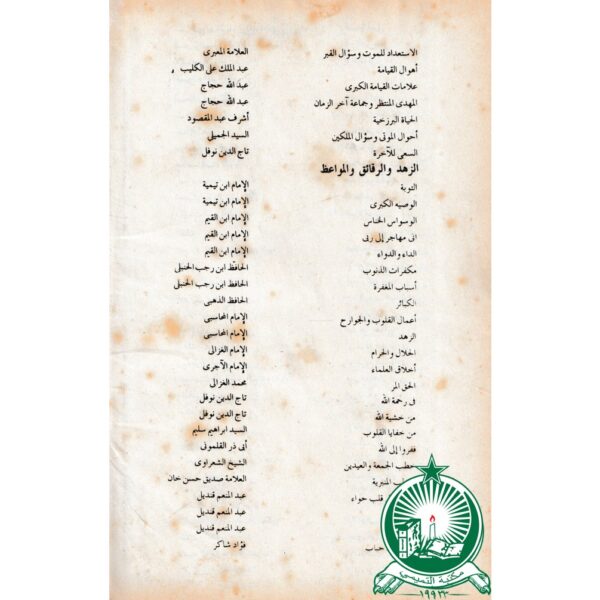 الاستعداد للموت وسؤال القبر العلامة المعبرى
أهوال القيامة عبد الملك على الكليب
علامات القيامة الكبرى عبد الله حجاج
المهدى المنتظر وجماعة آخر الزمان عبد الله حجاج
الحياة البرزخية أشرف عبد المقصود
أحوال الموتى وسؤال الملكين السيد الجميلى
السعى للآخرة تاج الدين نوفل
الزهد والرقائق والمواعظ
التوبة الإمام ابن تيمية
الوصيه الكبرى الإمام ابن تيمية
الوسواس الخناس الإمام ابن القيم
انى مهاجر إلى ربى الإمام ابن القيم
الداء والدواء الإمام ابن القيم
مكفرات الذنوب الحافظ ابن رجب الحنبلى
أسباب المغفرة الحافظ ابن رجب الحنبلى
الكبائر الحافظ الذهبى
أعمال القلوب والجوارح الإمام المحاسبى
الزهد الإمام المحاسبى
الحلال والحرام الإمام الغزالى
أخلاق العلماء الإمام الآجرى
الحق المر محمد الغزالى
فى رحمة الله تاج الدين نوفل
من خشية الله تاج الدين نوفل
من خفايا القلوب السيد ابراهيم سليم
ففروا إلى الله أبى ذر القلمونى
خطب الجمعة والعيدين الشيخ الشعراوى
المنبرية العلامة صديق حسن خان
قلب حواء عبد المنعم قنديل
عبد المنعم قنديل
عبد المنعم قنديل
فؤاد شاكر
مكتبة التميمي
١٩٩٢٣